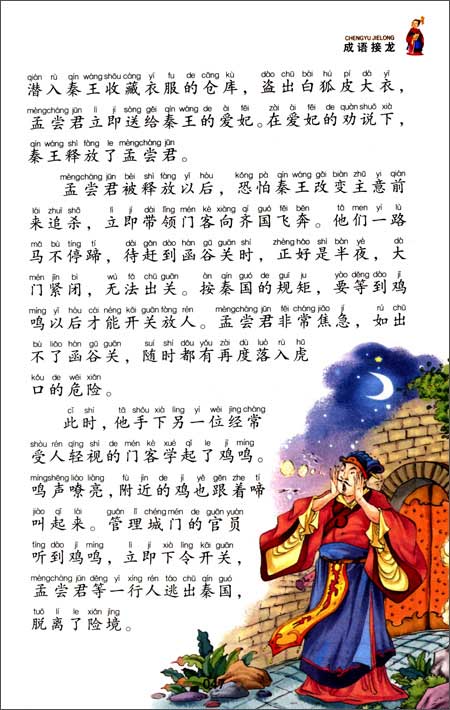 CHENGYU JIELONG
成语接龙
qián rù qín wáng shōu cáng yī fu de cāng kù dào chū bái hú pí dà yī
潜入秦王收藏衣服的仓库，盗出白狐皮大衣，
mèngcháng jūn lì jí sòng gěi qín wáng de ài fēi zài ài fēi de quàn shuō xià
孟尝君立即送给秦王的爱妃。在爱妃的劝说下，
qín wáng shì fàng le mèngcháng jūn
秦王释放了孟尝君。
mèngcháng jūn bèi shì fàng yǐ hòu kǒng pà qín wáng gǎi biàn zhǔ yi qián
孟尝君被释放以后，恐怕秦王改变主意前
lái zhuī shā lì jí dài lǐng mén kè xiàng qí guó fēi bēn tā men yí lù
来追杀，立即带领门客向齐国飞奔。他们一路
mǎ bù tíng tí dài gǎn dào hán gǔ guān shí zhèng hǎo shì bàn yè dà
马不停蹄，待赶到函谷关时，正好是半夜，大
mén jǐn bì wú fǎ chū guān àn qín guó de guī ju yào děng dào jī
门紧闭，无法出关。按秦国的规矩，要等到鸡
míng yǐ hòu cái néng kāi guān fàng rén mèngcháng jūn fēi cháng jiāo jí rú chū
鸣以后才能开关放人。孟尝君非常焦急，如出
bù liǎo hán gǔ guān suí shí dōu yǒu zài dù luò rù hǔ
不了函谷关，随时都有再度落入虎
kǒu de wēi xiǎn
口的危险。
cǐ shí tā shǒu xià lìng yí wèi jīng cháng
此时，他手下另一位经常
shòu rén qīng shì de mén kè xué qǐ le jī míng
受人轻视的门客学起了鸡鸣。
míngshēng liáo liàng fù jìn de jī yě gēn zhe tí
鸣声嘹亮，附近的鸡也跟着啼
jiào qǐ lái guǎn lǐ chéng mén de guān yuán
叫起来。管理城门的官员
tīng dào jī míng lì jí xià lìng kāi guān
听到鸡鸣，立即下令开关，
mèngcháng jūn děng yì xíng rén táo chū qín guó
孟尝君等一行人逃出秦国，
tuō lí le xiǎn jìng
脱离了险境。